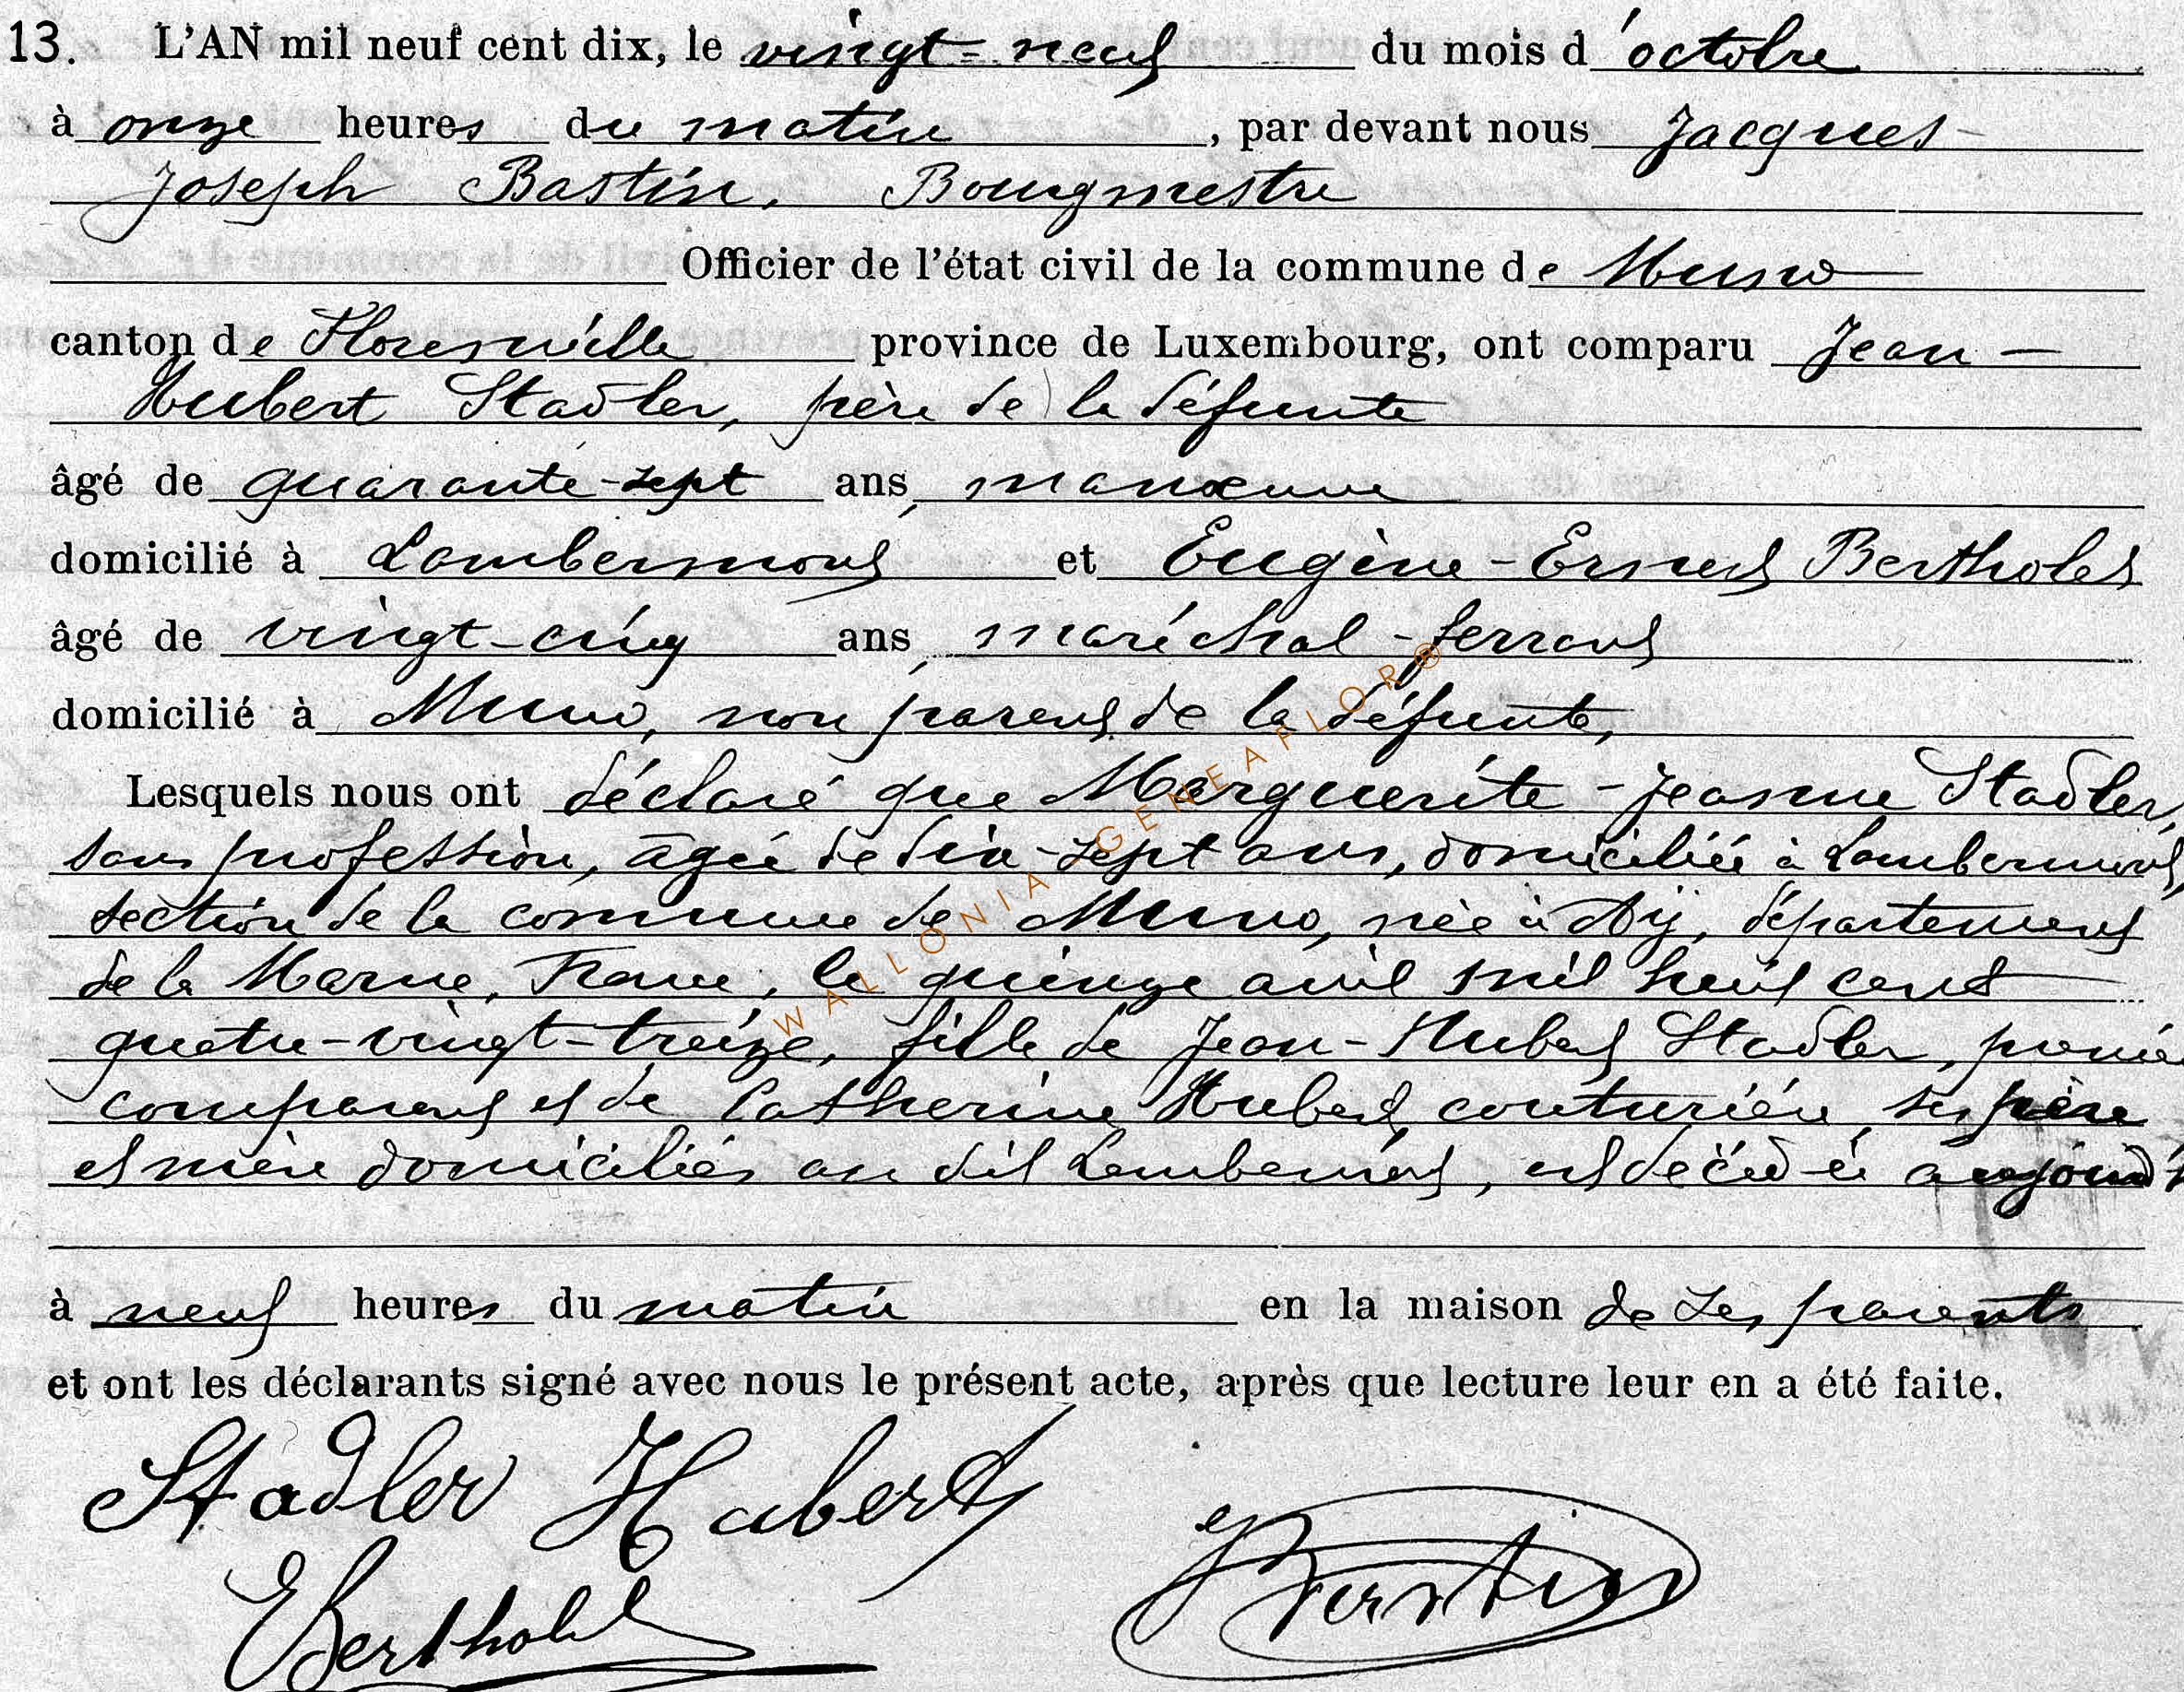 13. L'AN mil neuf cent dix, le vingt-neuf du mois d'octobre
à onze heures du matin, par devant nous Jacques-
Joseph Bastin, Bourgmestre
Officier de l'état civil de la commune de Muno
canton de Florenville province de Luxembourg, ont comparu Jean-
Hubert Stadler, père de la défunte
âgé de quarante-sept ans, manœuvre
domicilié à Lambermont et Eugène-Ernest Bertholet
âgé de vingt-cinq ans, maréchal-ferrant
domicilié à Muno, non parent de la défunte,
Lesquels nous ont déclaré que Marguerite-Jeanne Stadler,
sans profession, âgée de dix-sept ans, domiciliée à Lambermont,
section de la commune de Muno, née à Aÿ, département
de la Marne, France, le quinze avril mil huit cent
quatre-vingt-treize, fille de Jean-Hubert Stadler, premier
comparant et de Catherine Hubert, couturière, ses père
et mère domiciliés au dit Lambermont, est décédée aujourd'h
à neuf heures du matin en la maison de ses parents
et ont les déclarants signé avec nous le présent acte, après que lecture leur en a été faite.
Stadler Hubert
EBertholet
JBastin
WALLONIA GENEAFLOR®